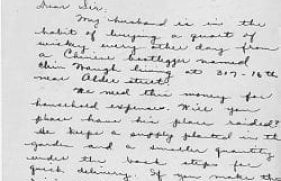 Dear Sir:
My husband is in the
habit of buying a quart of
wiskey every other day from
a Chinese bootlegger named
Chin Waugh living at 317-16th
near Alder street.
We need this money for
household expenses. Will you
please have his place raided?
He keeps a supply planted in the
garden and a smaller quantity
under the back steps for
quick delivery. If you make the